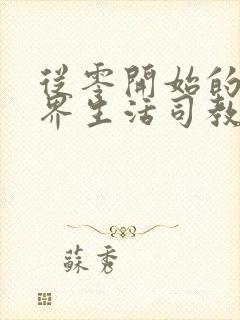 從零開始的
界生活司教
蘇秀